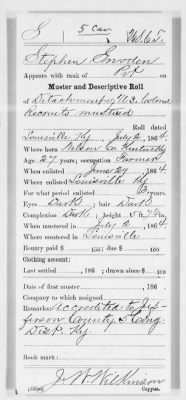 S 5 Cav U.S.C.T.
Stephen Snoden
Appears with rank of Pvt on
Muster and Descriptive Roll
of Detachment of U.S. Colored
Recruits mustered
Roll dated
Louisville Ky July 2, 1864.
Where born Nelson Co. Kentucky
Age 27 years; occupation Farmer
When enlisted June 29, 1864.
Where enlisted Louisville Ky
For what period enlisted 3 years.
Eyes Dark; hair Dark
Complexion Dark; 5 ft. 7 in.
When mustered in July 2, 1864.
Where mustered in Louisville
Bounty paid $ 100; due $ 100
Clothing account:
Last settled , 186 ; drawn since $ 100
Date of first muster , 186
Company to which assigned
Remarks: Accredited to Jef-
ferson County 5 Cong.
Dist. Ky
Book mark:
J. W. Wilkinson
Copyist.